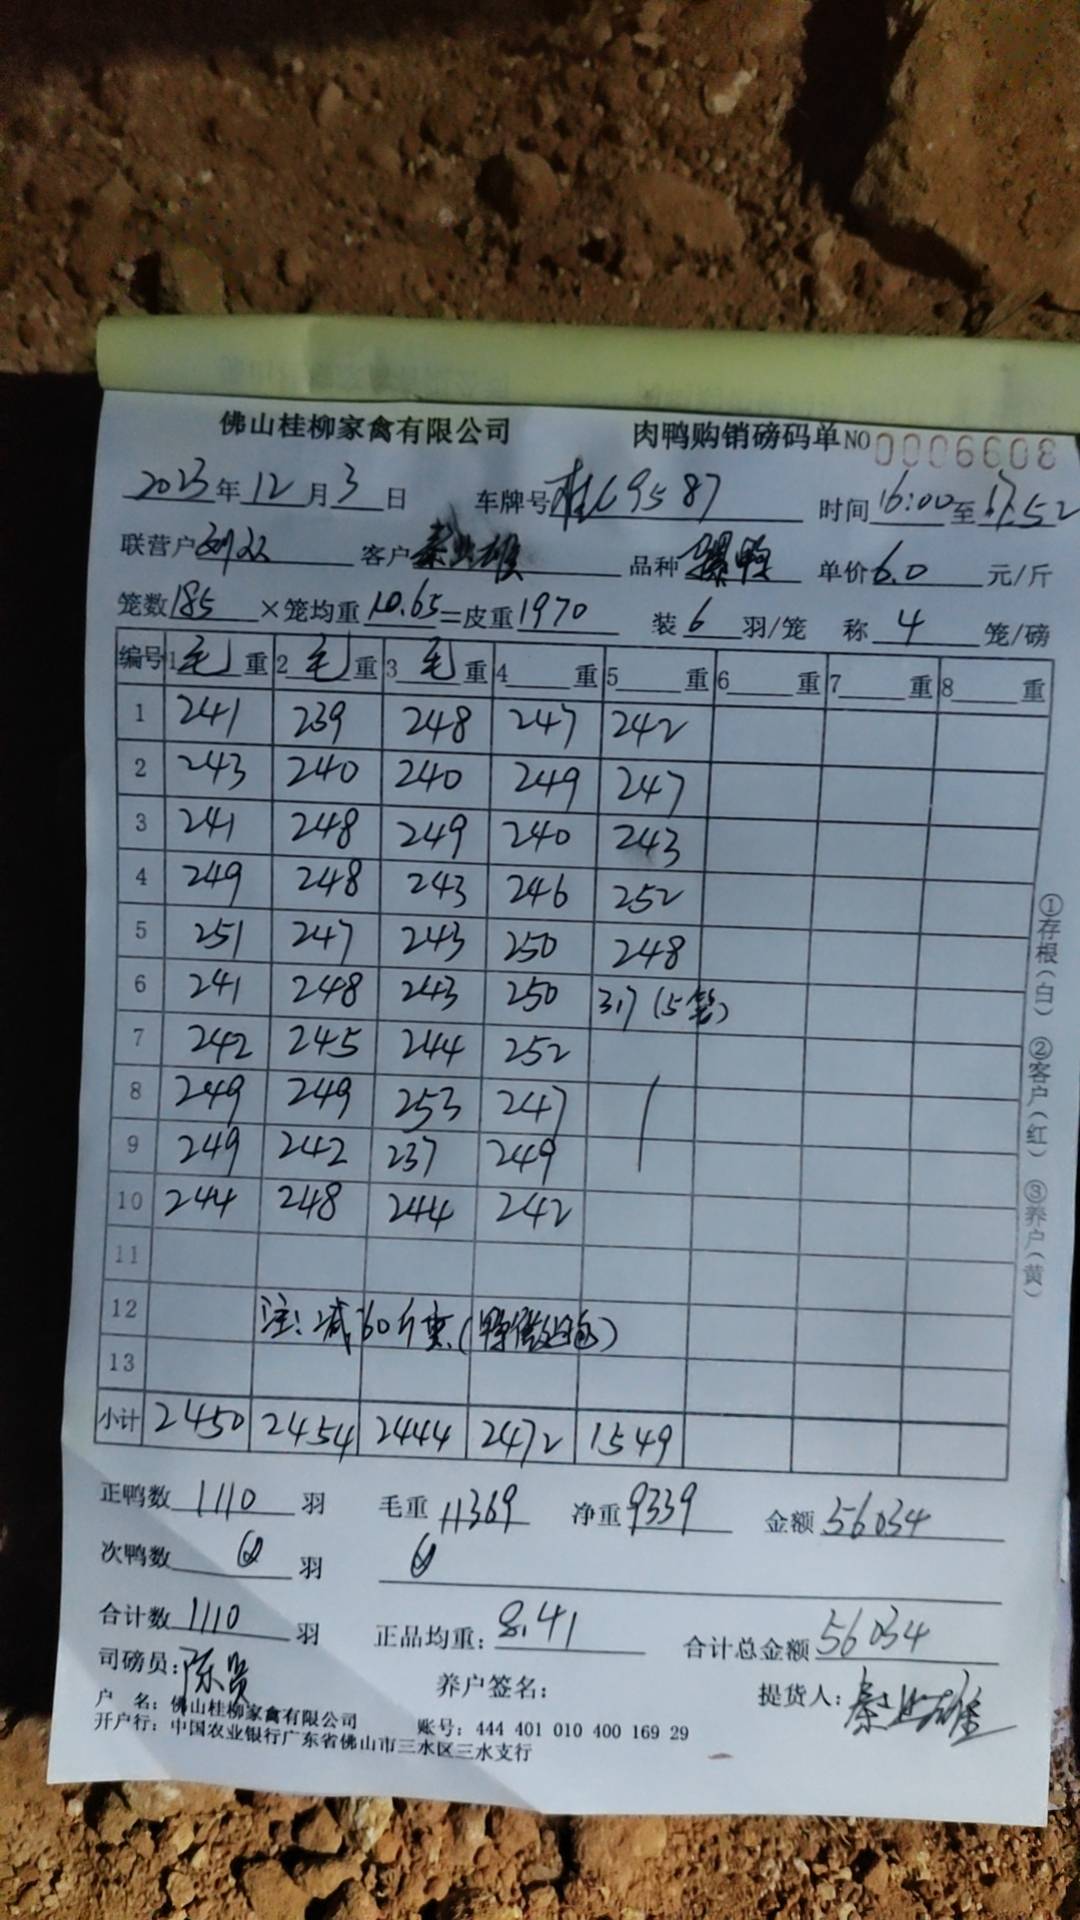 佛山桂柳家禽有限公司 肉鸭购销磅码单 NO 0006608
2023年12月3日 车牌号桂C9587 时间16:00至17:52
联营户 客户秦业雄 品种骡鸭 单价6.0元/斤
笼数185×笼均重10.65=皮重1970 装6羽/笼 称4笼/磅
编号 1毛重 2毛重 3毛重 4重 5重 6重 7重 8重
1 241 239 248 247 242
2 243 240 240 249 247
3 241 248 249 240 243
4 249 248 243 246 252
5 251 247 243 250 248
6 241 248 243 250 317(5笼)
7 242 245 244 252
8 249 249 253 247
9 249 242 237 249
10 244 248 244 242
11
12 注:减60斤
13
小计 2450 2454 2444 2472 1549
正鸭数1110羽 毛重11369 净重9339 金额56034
次鸭数0羽 0
合计数1110羽 正品均重:8.41 合计总金额56034
司磅员:陈贤 养户签名: 提货人:秦业雄
户 名:佛山桂柳家禽有限公司 账号:444 401 010 400 169 29
开户行:中国农业银行广东省佛山市三水区三水支行
①存根(白) ②客户(红) ③养户(黄)